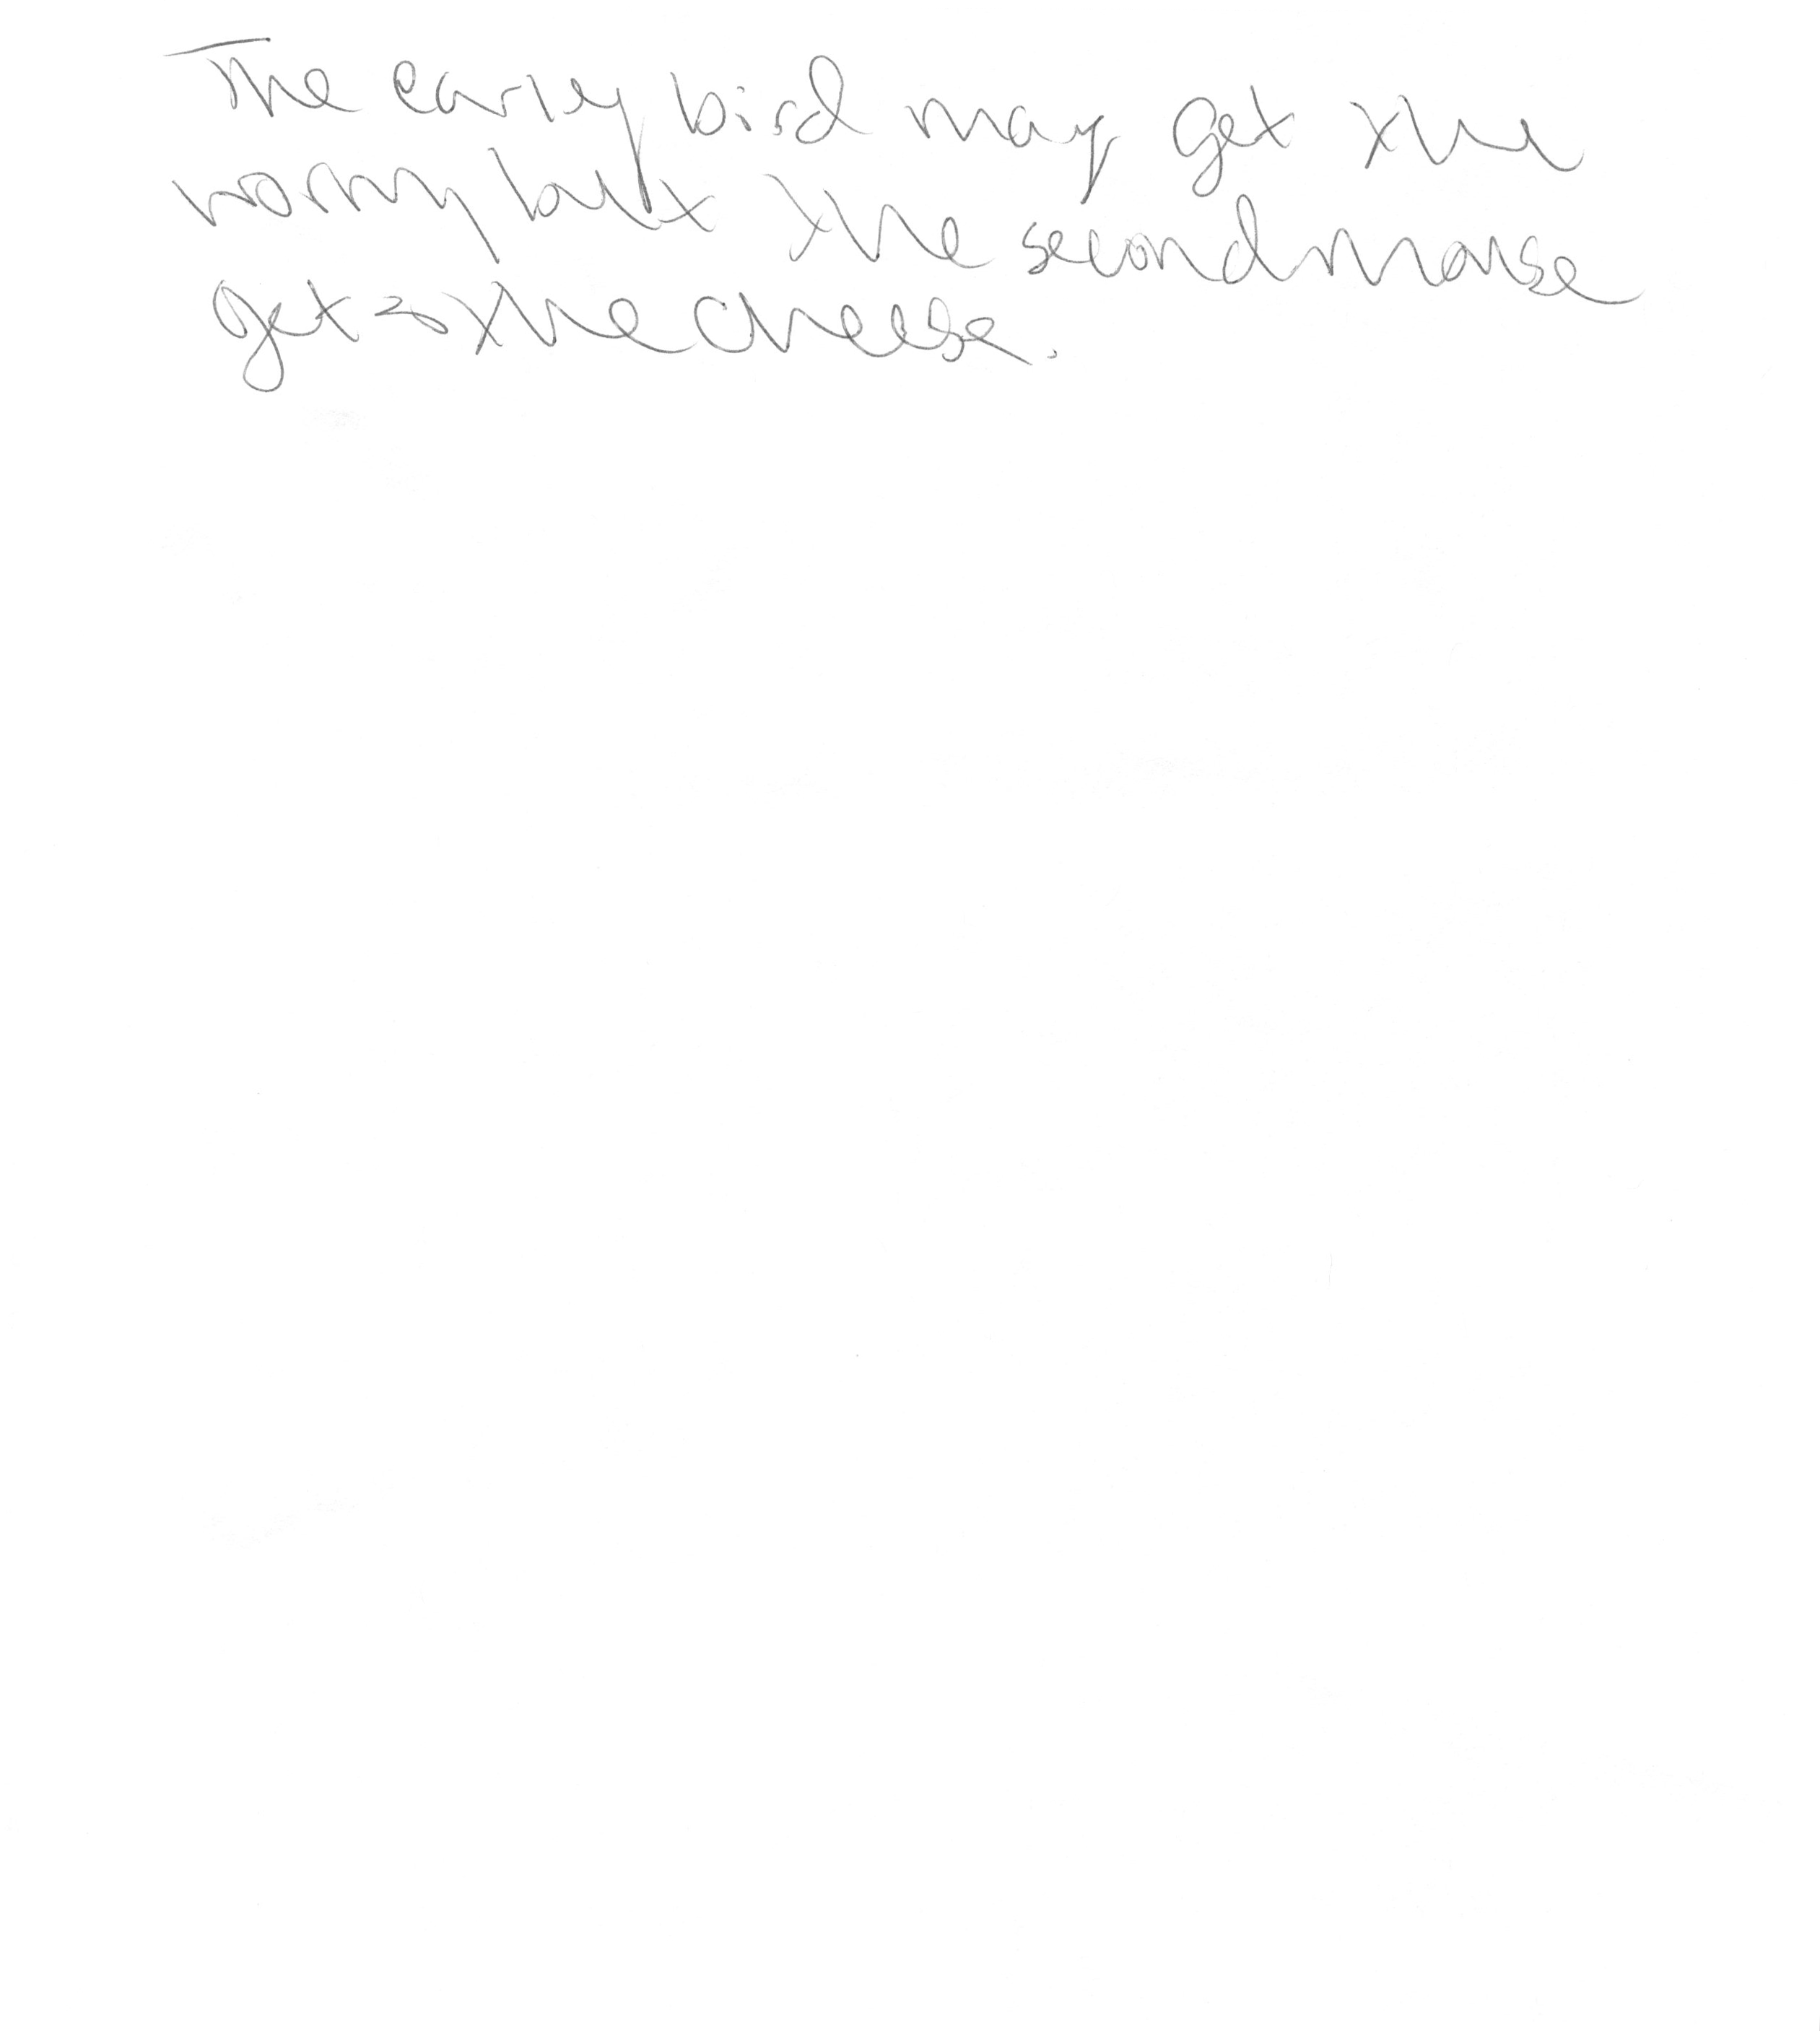 The earley bird may get the
worm, but the second mouse
gets the cheese.